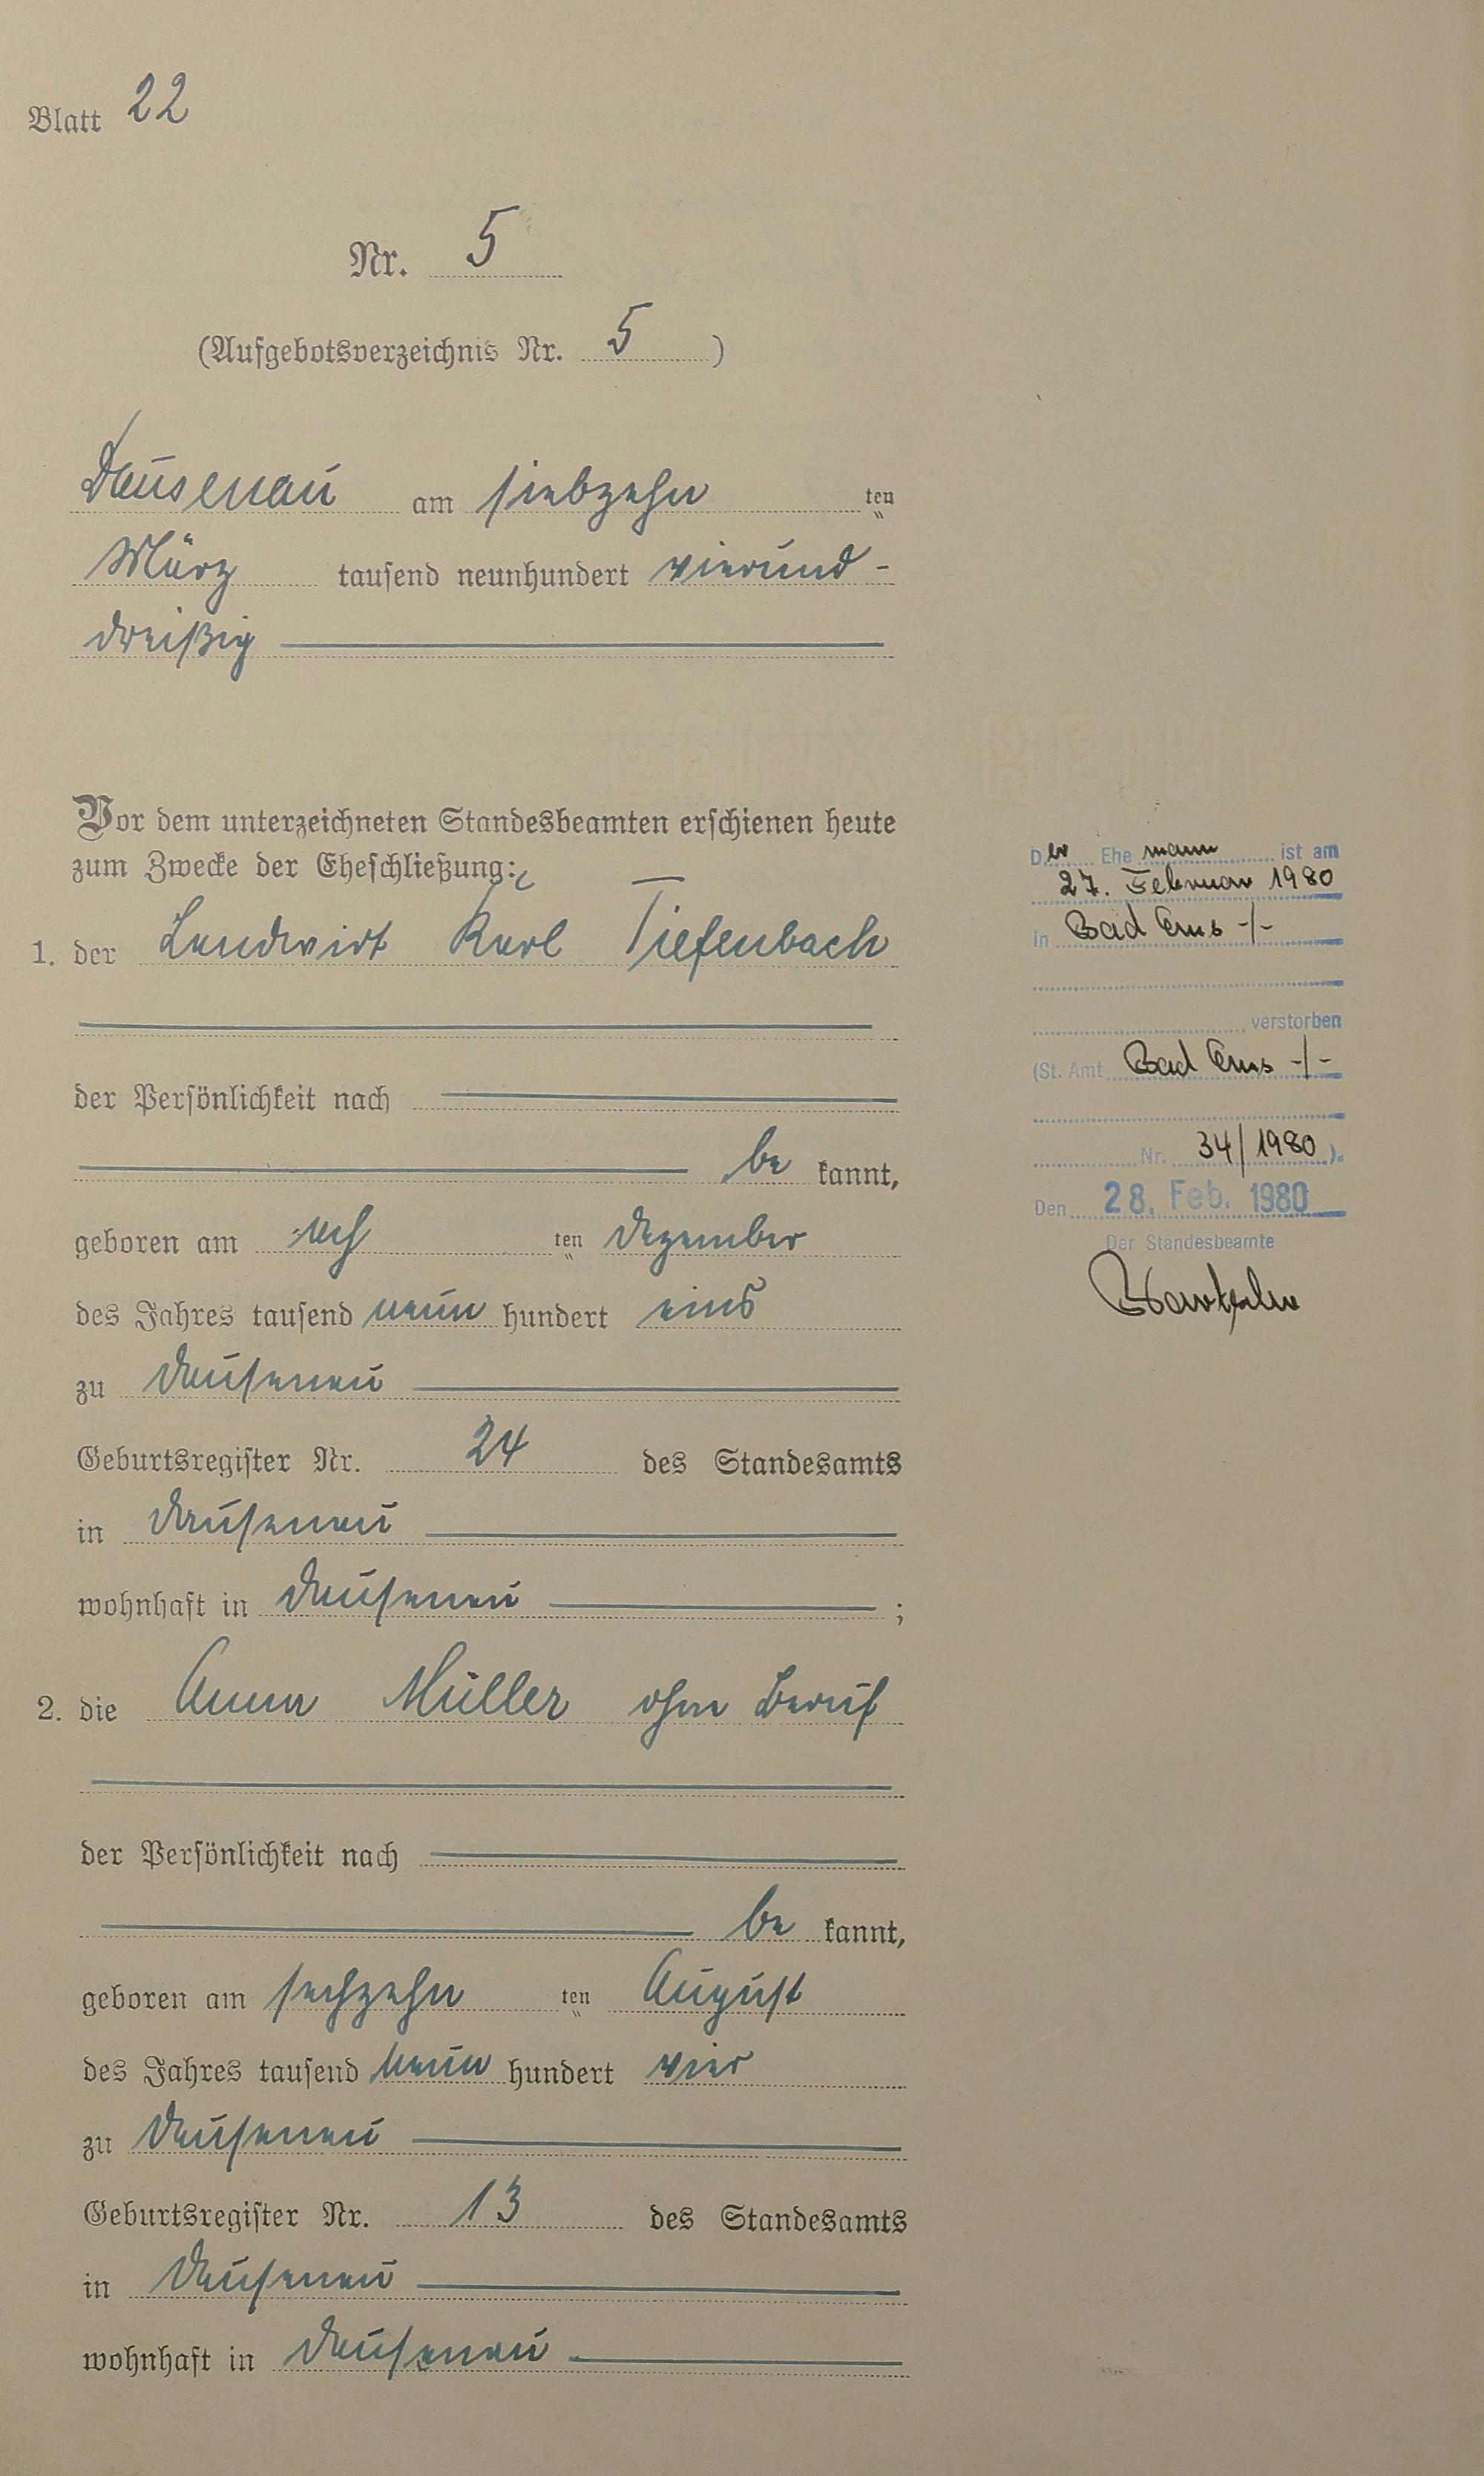 Blatt 22
Nr. 5
(Aufgebotsverzeichnis Nr. 5 )
Dausenau am siebzehn ten
März tausend neunhundert vierund-
dreißig
Vor dem unterzeichneten Standesbeamten erschienen heute
zum Zwecke der Eheschließung:
1. der Landwirt Karl Tiefenbach
der Persönlichkeit nach
be kannt,
geboren am ten Dezember
des Jahres tausend neun hundert eins
zu Dausenau
Geburtsregister Nr. 24 des Standesamts
in Dausenau
wohnhaft in Dausenau ;
2. die Anna Müller ohne Beruf
der Persönlichkeit nach
be kannt,
geboren am sechzehn ten August
des Jahres tausend neun hundert vier
zu Dausenau
Geburtsregister Nr. 13 des Standesamts
in Dausenau
wohnhaft in Dausenau
Der Ehemann ist am
27. Februar 1980
in Bad Ems -/-
verstorben
(St. Amt Bad Ems -/-
Nr. 34/1980).
Den 28. Feb. 1980
Der Standesbeamte